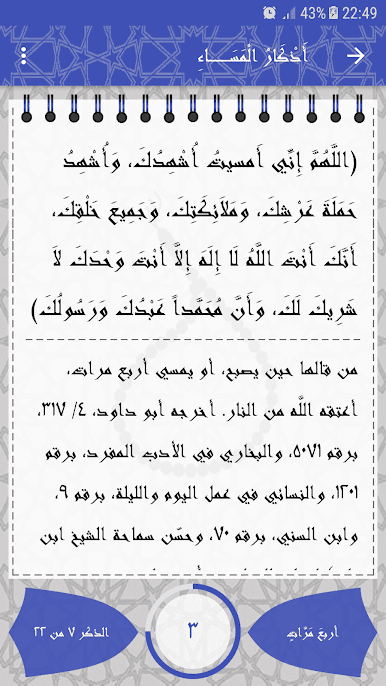 43% 22:49
أَذْكَارُ الْمَسَـــاءِ
(اللَّهُمَّ إِنِّي أَمسيتُ أُشْهِدُكَ، وَأُشْهِدُ
حَمَلَةَ عَرْشِكَ، وَمَلَائِكَتِكَ، وَجَمِيعَ خَلْقِكَ،
أَنَّكَ أَنْتَ اللَّهُ لَا إِلَهَ إِلَّا أَنْتَ وَحْدَكَ لَا
شَرِيكَ لَكَ، وَأَنَّ مُحَمَّداً عَبْدُكَ وَرَسُولُكَ)
من قالها حين يصبح، أو يمسي أربع مرات،
أعتقه الله من النار. أخرجه أبو داود، ٤/ ٣١٧،
برقم ٥٠٧١، والبخاري في الأدب المفرد، برقم
١٢٠١، والنسائي في عمل اليوم والليلة، برقم ٩،
وابن السني، برقم ٧٠، وحسّن سماحة الشيخ ابن
أربعَ مَرَّاتٍ
٣
الذكر ٧ من ٢٢